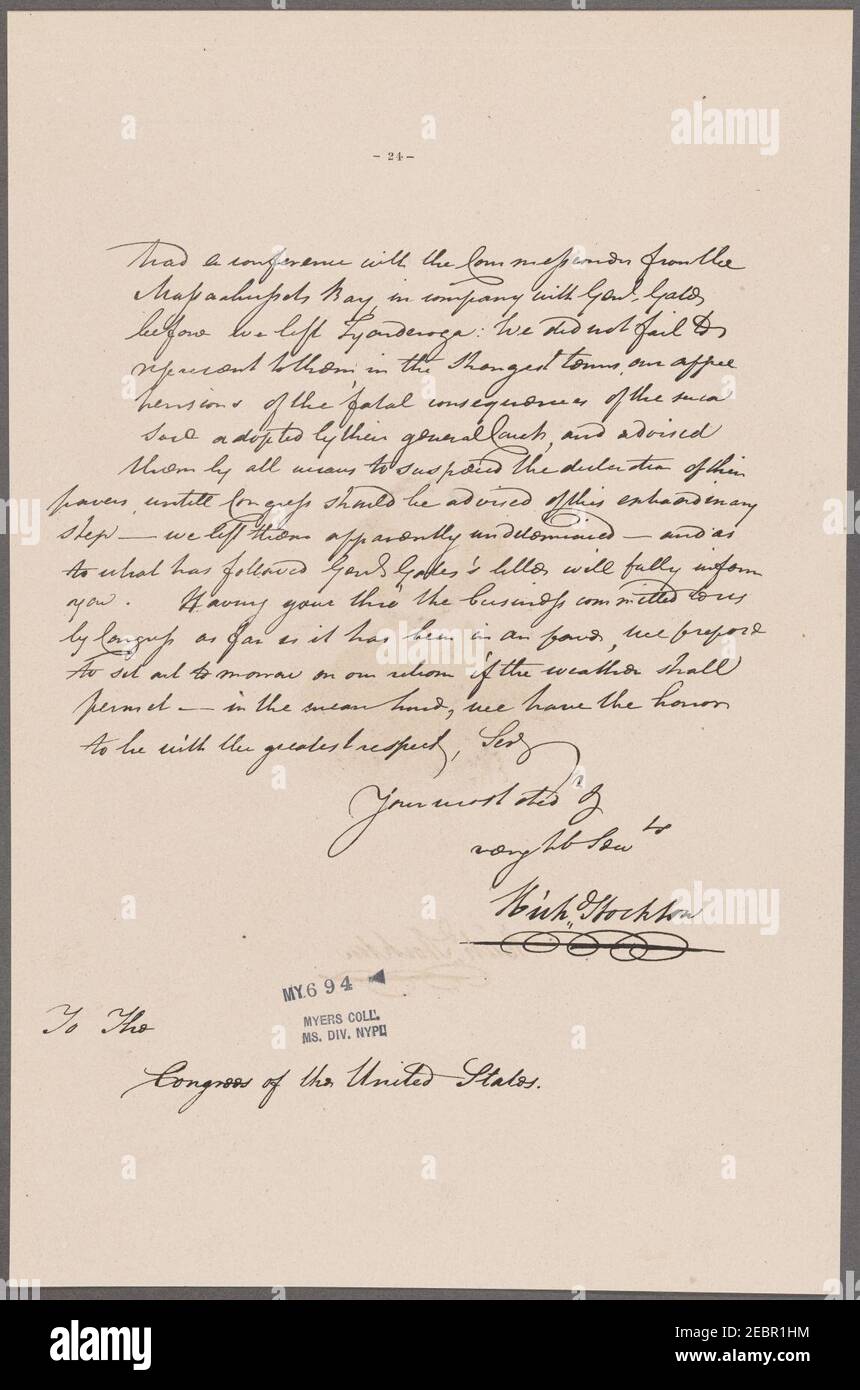 - 24 -
had a conference with the Commessioners from the
Massachussets Bay, in company with Genl. Gates
before we left Tyonderoga: We did not fail to
represent to them, in the strongest terms, our appre
hensions of the fatal consequences of the mea
sure adopted by their general Court, and advised
them by all means to suspend the declaration of their
powers, untill Congress should be advised of this extraordinary
step — we left them apparently undetermined — and as
to what has followed Genl. Gates's letter will fully inform
you. Having gone thro' the business committed to us
by Congress as far as it has been in our power, we propose
to set out to morrow on our return if the weather shall
permit — in the mean time, we have the honor
to be with the greatest respect,
Your most obed't &
very hb Serv'ts
Rich'd Stockton
MY.694
MYERS COLL.
MS. DIV. NYPL
To The
Congress of the United States.
alamy
alamy
alamy
a
a
a
alamy
Image ID: 2EBR1HM
www.alamy.com